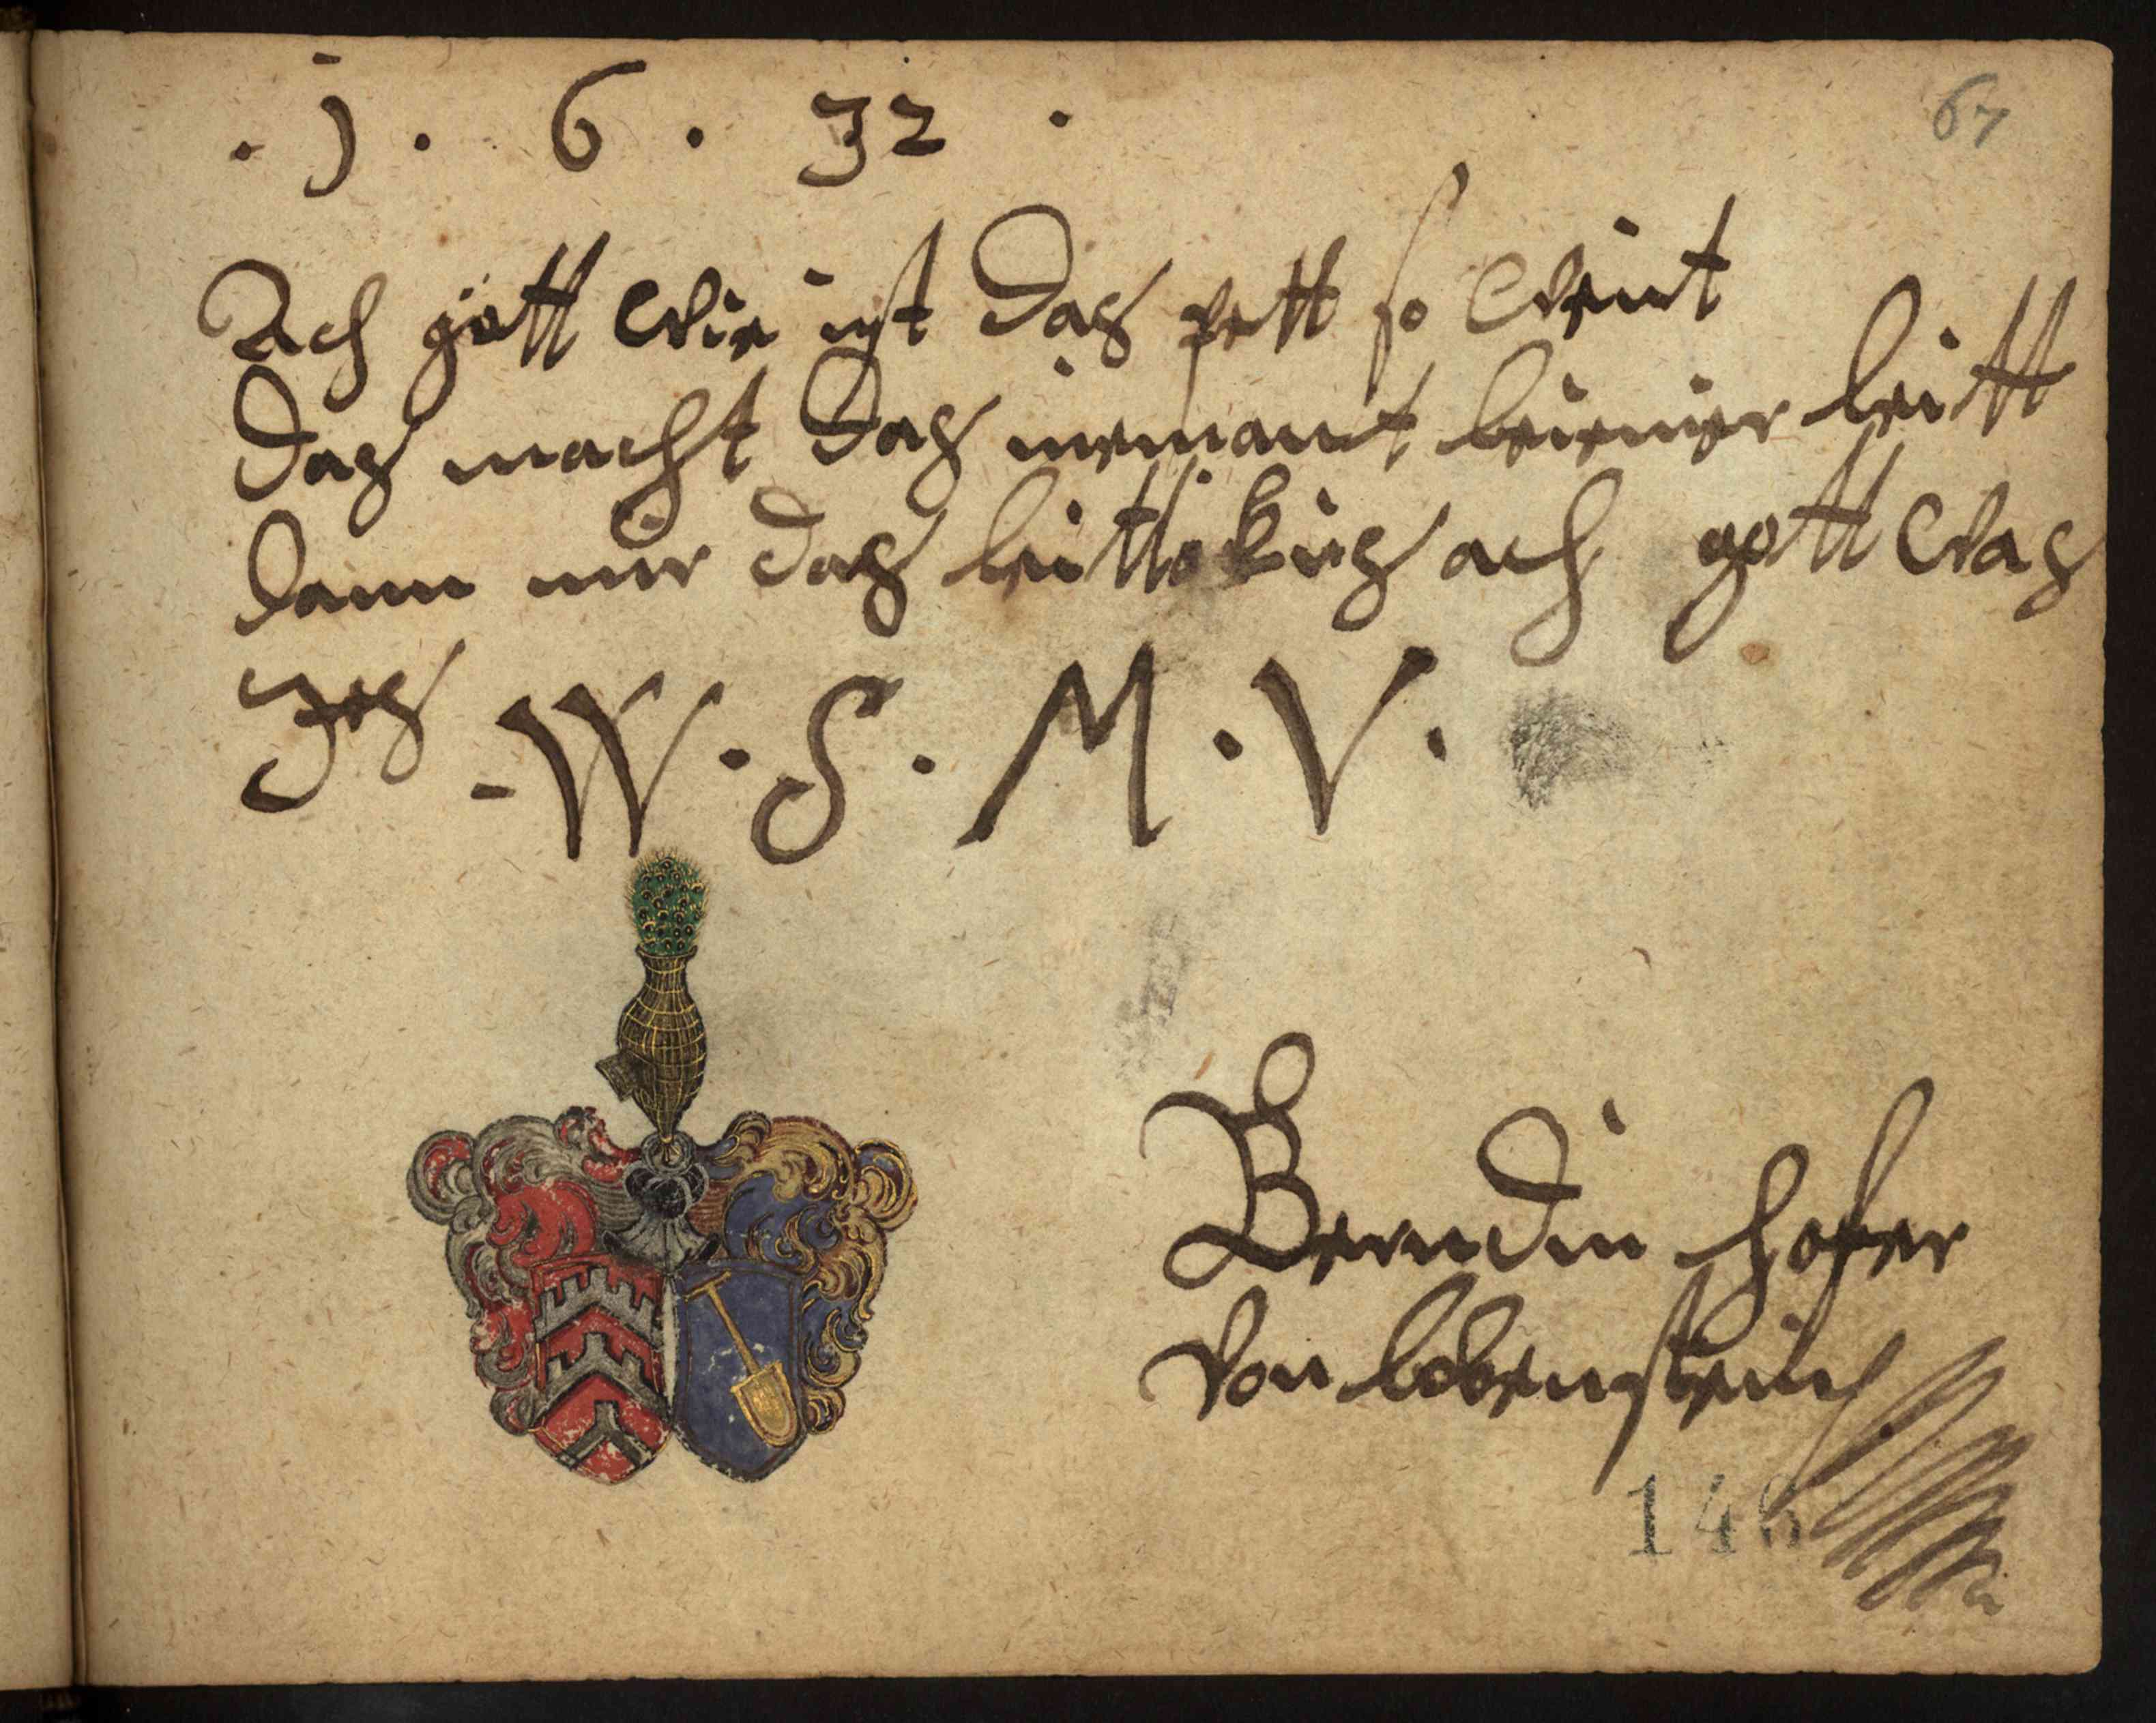 . 1 . 6 . 32 .
67
Ach gott wie ist das pett so weint
das macht das niemant beiemier leitt
dann mir das leittlo ach gott was
W . S . M . V .
Berndin hofer
von lobenstein
146